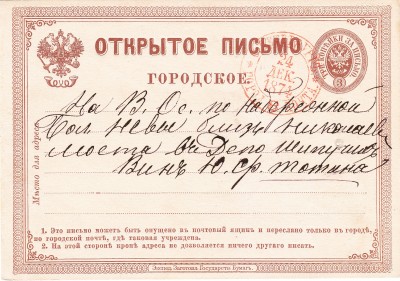 ОТКРЫТОЕ ПИСЬМО
ГОРОДСКОЕ.
24
ДЕК.
ТРИ КОПѢЙКИ ЗА ПИСЬМО
3
Мѣсто для адреса
На В. Ос. по набережной
Бол. Невы близь Николаев
моста въ Депо
Винъ Ю. Ср.
1. Это письмо можетъ быть опущено въ почтовый ящикъ и переслано только въ городѣ,
по городской почтѣ, гдѣ таковая учреждена.
2. На этой сторонѣ кромѣ адреса не дозволяется ничего другаго писать.
Экспед. Заготовл. Государств. Бумагъ.